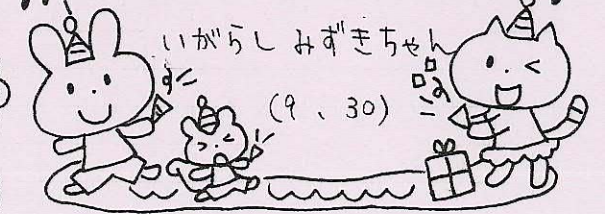 いがらし みずきちゃん
(9、30)